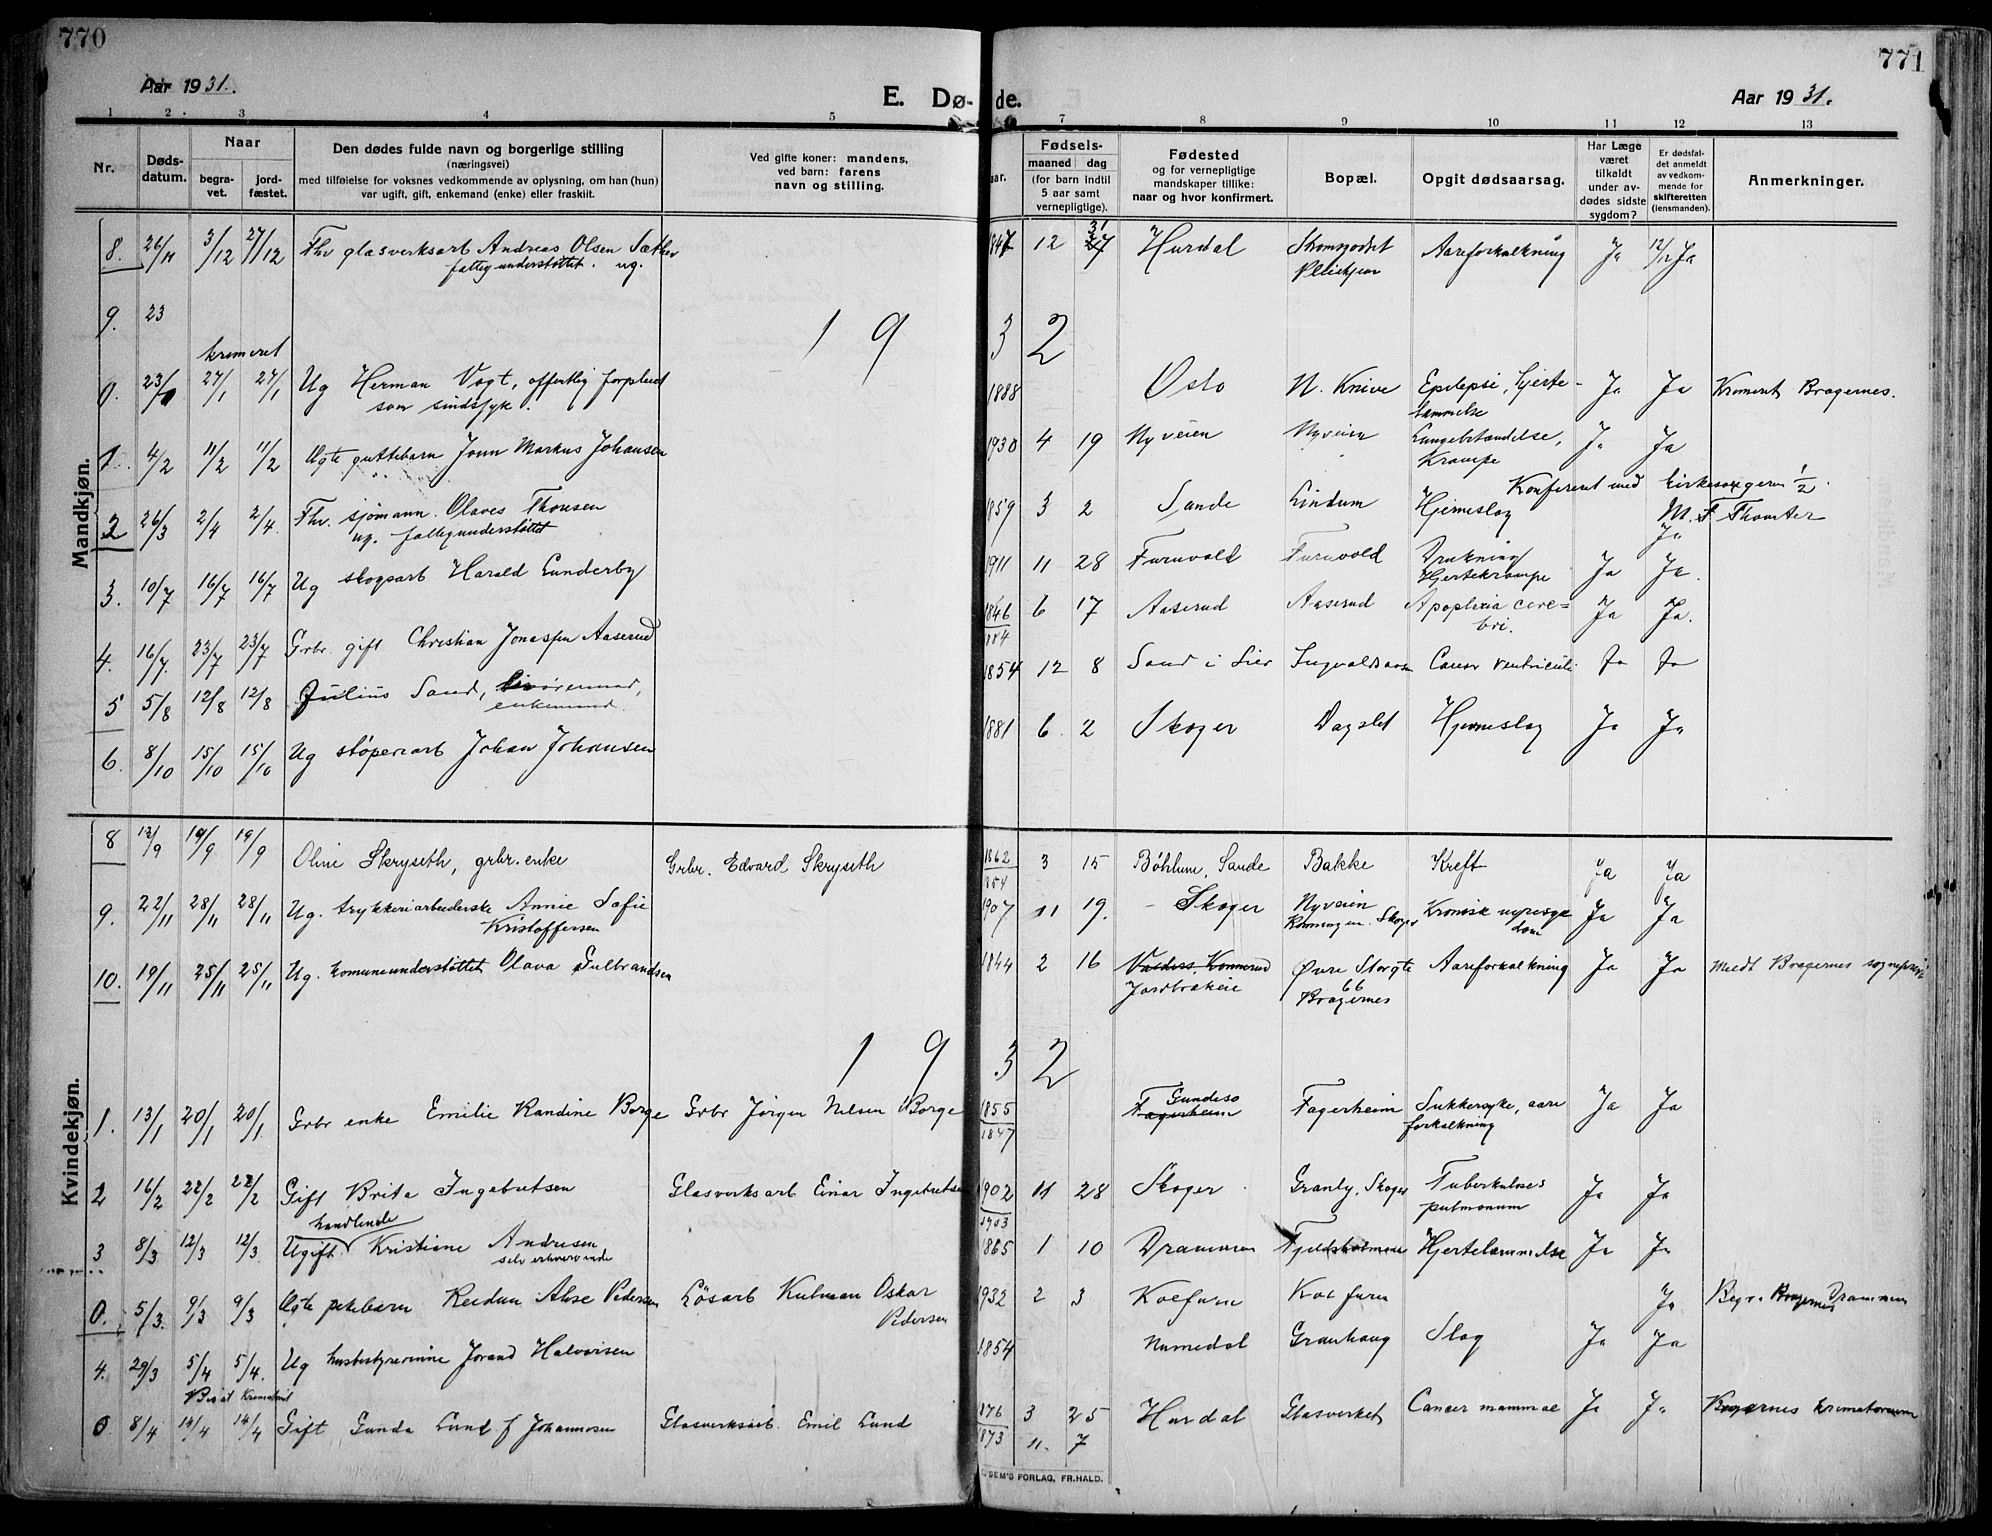 770
771
Aar 1931.
E. Dø- de.
Aar 1931.
1 2 3 4 5 7 8 9 10 11 12 13
Nr.
Døds-
datum.
Naar
begra-
vet.
jord-
fæstet.
Den dødes fulde navn og borgerlige stilling
(næringsvei)
med tilføielse for voksnes vedkommende av oplysning, om han (hun)
var ugift, gift, enkemand (enke) eller fraskilt.
Ved gifte koner: mandens,
ved barn: farens
navn og stilling.
Fødsels-
maaned dag
(for barn indtil
5 aar samt
vernepligtige).
Fødested
og for vernepligtige
mandskaper tillike:
naar og hvor konfirmert.
Bopæl.
Opgit dødsaarsag.
Har Læge
været
tilkaldt
under av-
dødes sidste
sygdom?
Er dødsfal-
det anmeldt
av vedkom-
mende for
skifteretten
(lensmanden).
Anmerkninger.
Mandkjøn.
8. 26/11 3/12 27/12 Fhv glasverksarb Andreas Olsen Sæther 1847 12 Hurdal Aareforkalkning Ja 12/12 Ja
fattigunderstøttet. ug.
9. 23
1 9 3 2
kremeret
0. 23/1 27/1 27/1 Ug Herman Vogt, offentlig forpleiet 1888 Oslo N. Knive Epilepsi, Hjerte- Ja Ja Kremert Bragernes.
som sindssyk. lammelse
1. 4/2 11/2 11/2 Ægte guttebarn John Markus Johansen 1930 4 19 Nyveien Nyveien Lungebetændelse, Ja Ja
Krampe
2 26/3 2/4 2/4 Fhv. sjømann. Olaves Thonsen 1859 3 2 Sande Lindum Hjerneslag Konferert med 1/2.
ug. fattigunderstøttet Ja
3. 10/7 16/7 16/7 Ug skogsarb Harald Lunderby 1911 11 28 Furuvold Furuvold Drukning/ Ja Ja.
Hjertekrampe
4. 16/7. 23/7 23/7 Grbr. gift Christian Jonassen Aaserud 1846 6 17 Aaserud Aaserud Apoplexia cere= Ja Ja.
bri.
5 5/8 12/8 12/8 Julius Sand, 1854 12 8 Sand i Lier Cancer ventriculi Ja Ja
enkemand.
6. 8/10 15/10 15/10 Ug støperiarb Johan Johansen 1881 6. 2 Skoger Dagslet Hjerneslag Ja Ja
Kvindekjøn.
8 12/9 19/9 19/9 Oline Skryseth, grbr. enke Grbr. Edvard Skryseth 1862 3 15 Sande Bakke Kreft Ja Ja
1854
9. 22/11 28/11 28/11 Ug. trykkeriarbeiderske Annie Sofie 1907 11 19. Skoger Nyveien Kronisk nyresyk Ja Ja
Kristoffersen Konnerugen. Skoger dom
10. 19/11 25/11 25/11 Ug. kommuneunderstøttet Olava Gulbrandsen 1844 2 16 Valders, Konnerud Øvre Storgte Aareforkalkning Ja Ja Meldt Bragernes sogneprest
Jordbrakeie 66
Bragernes
1 9 3 2
1. 13/1 20/1 20/1 Grbr enke Emilie Randine Borge Grbr Jørgen Nilsen Borge 1855 Gundeso Fagerheim Sukkersyke, aare Ja Ja
1847 Fagerheim forkalkning
2 16/2 22/2 22/2 Gift Brita Ingebretsen Glasverksarb Einar Ingebretsen 1902 11 28 Skoger Granly, Skoger Tuberkulosis Ja Ja
1903 pulmonum
handlende
3 8/3 12/3 12/3 Ugift Kristiane Andresen 1865 1 10 Drammen Fjeldsholmene Hjertelammelse Ja Ja
selverhvervende
0. 5/3. 9/3 9/3 Ægte pikebarn Reidun Alise Pedersen Løsarb Kulman Oskar 1932 2 3 Kolfurn Kolfurn Ja Begr. Bragernes Drammen
Pedersen
4. 29/3 5/4 5/4. Ug husbestyrerinne Jorand Halvorsen 1854 Numedal Granhaug Slag Ja Ja
Bisat Krematoriet
0 8/4 14/4 14/4 Gift Gunda Lund f Johannesen Glasverksarb. Emil Lund 1876 3 25 Hurdal Glasverket Cancer mammae Ja Ja Bragernes krematorium
1873 11. 7
SEM'S FORLAG, FR.HALD.